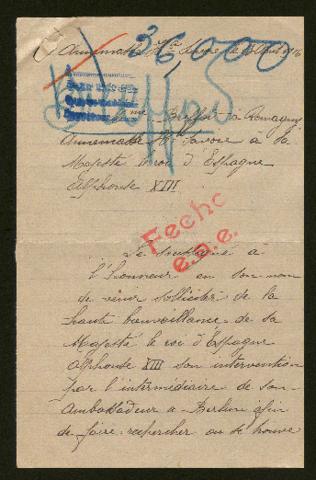 Annemasse Hte Savoie le Août 1916
36,000
Mme à Romagny
Annemasse Hte Savoie à Sa
Majesté le roi d'Espagne
Alphonse XIII
Fecho
e.g.e.
Le soussigné a
l'honneur en son nom
de venir solliciter de la
haute bienveillance de sa
Majesté le roi d'Espagne
Alphonse XIII son intervention
par l'intermédiaire de son
Ambassadeur a Berlin afin
de faire rechercher ou se trouve